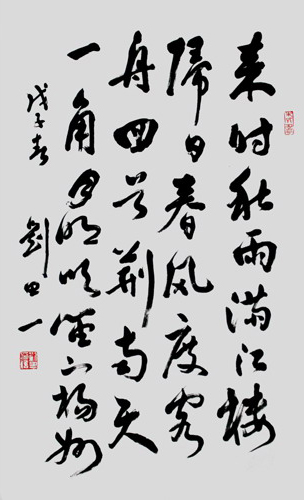 来时秋雨满江楼
歸日春风度客
舟回首荆南天
一角月明吹笛下楊州
戊子春 劉 一